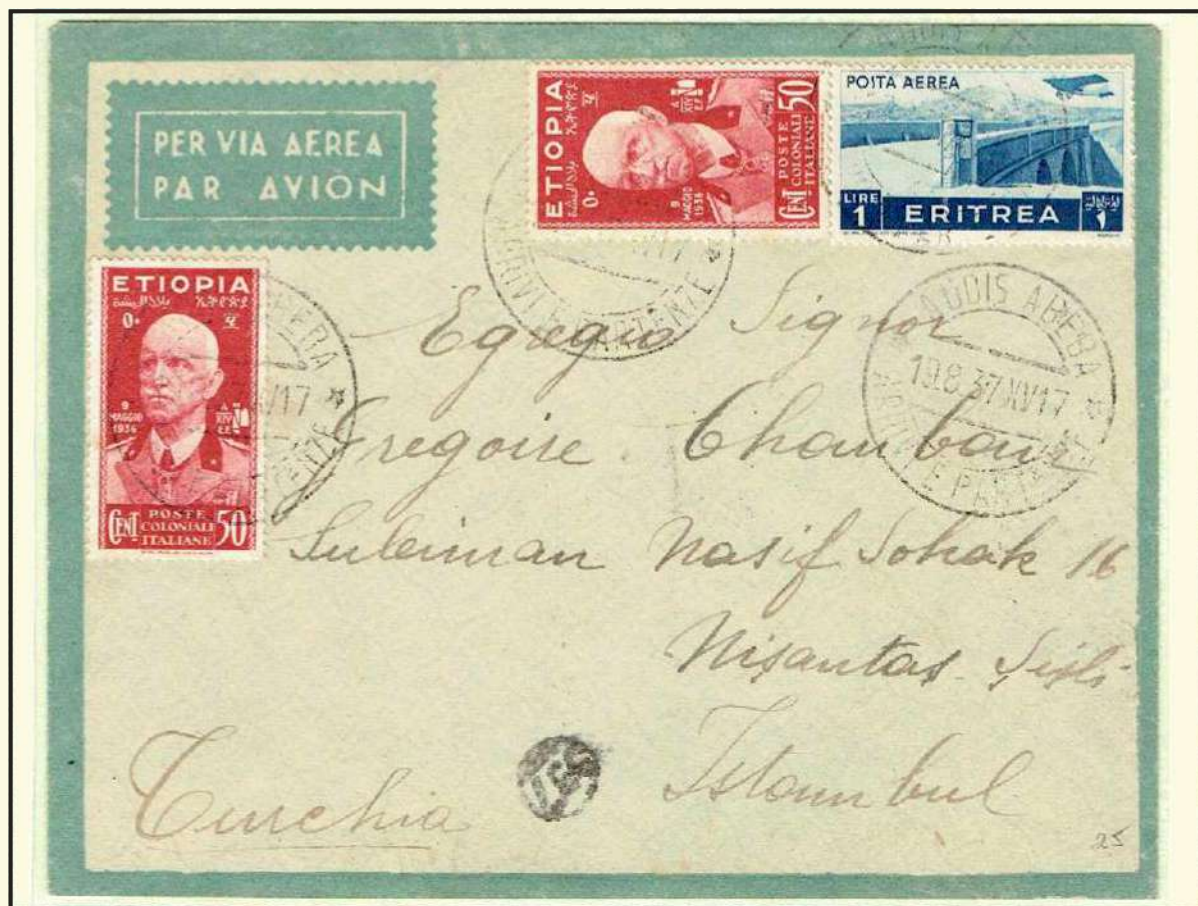 PER VIA AEREA
PAR AVION
ETIOPIA
ኢትዮጵያ
9
MAGGIO
1936
A
XIV
E.F.
CENT 50
POSTE
COLONIALI
ITALIANE
POSTA AEREA
LIRE
1
ERITREA
ETIOPIA
ኢትዮጵያ
9
MAGGIO
1936
A
XIV
E.F.
CENT 50
POSTE
COLONIALI
ITALIANE
ADDIS ABEBA
19.8.37.XV 17
ARRIVI E PARTENZE
Egregio Signor
Gregoire
Suleiman Nasif Sokak 16
Nişantas Şişli
Istambul
Turchia
25